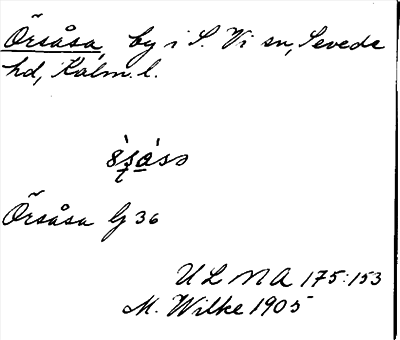 Örsåsa, by i S. Vi sn, Sevede
hd, Kalm. l.
Örsåsa Gj 36
ULMA 175:153
M. Wilke 1905